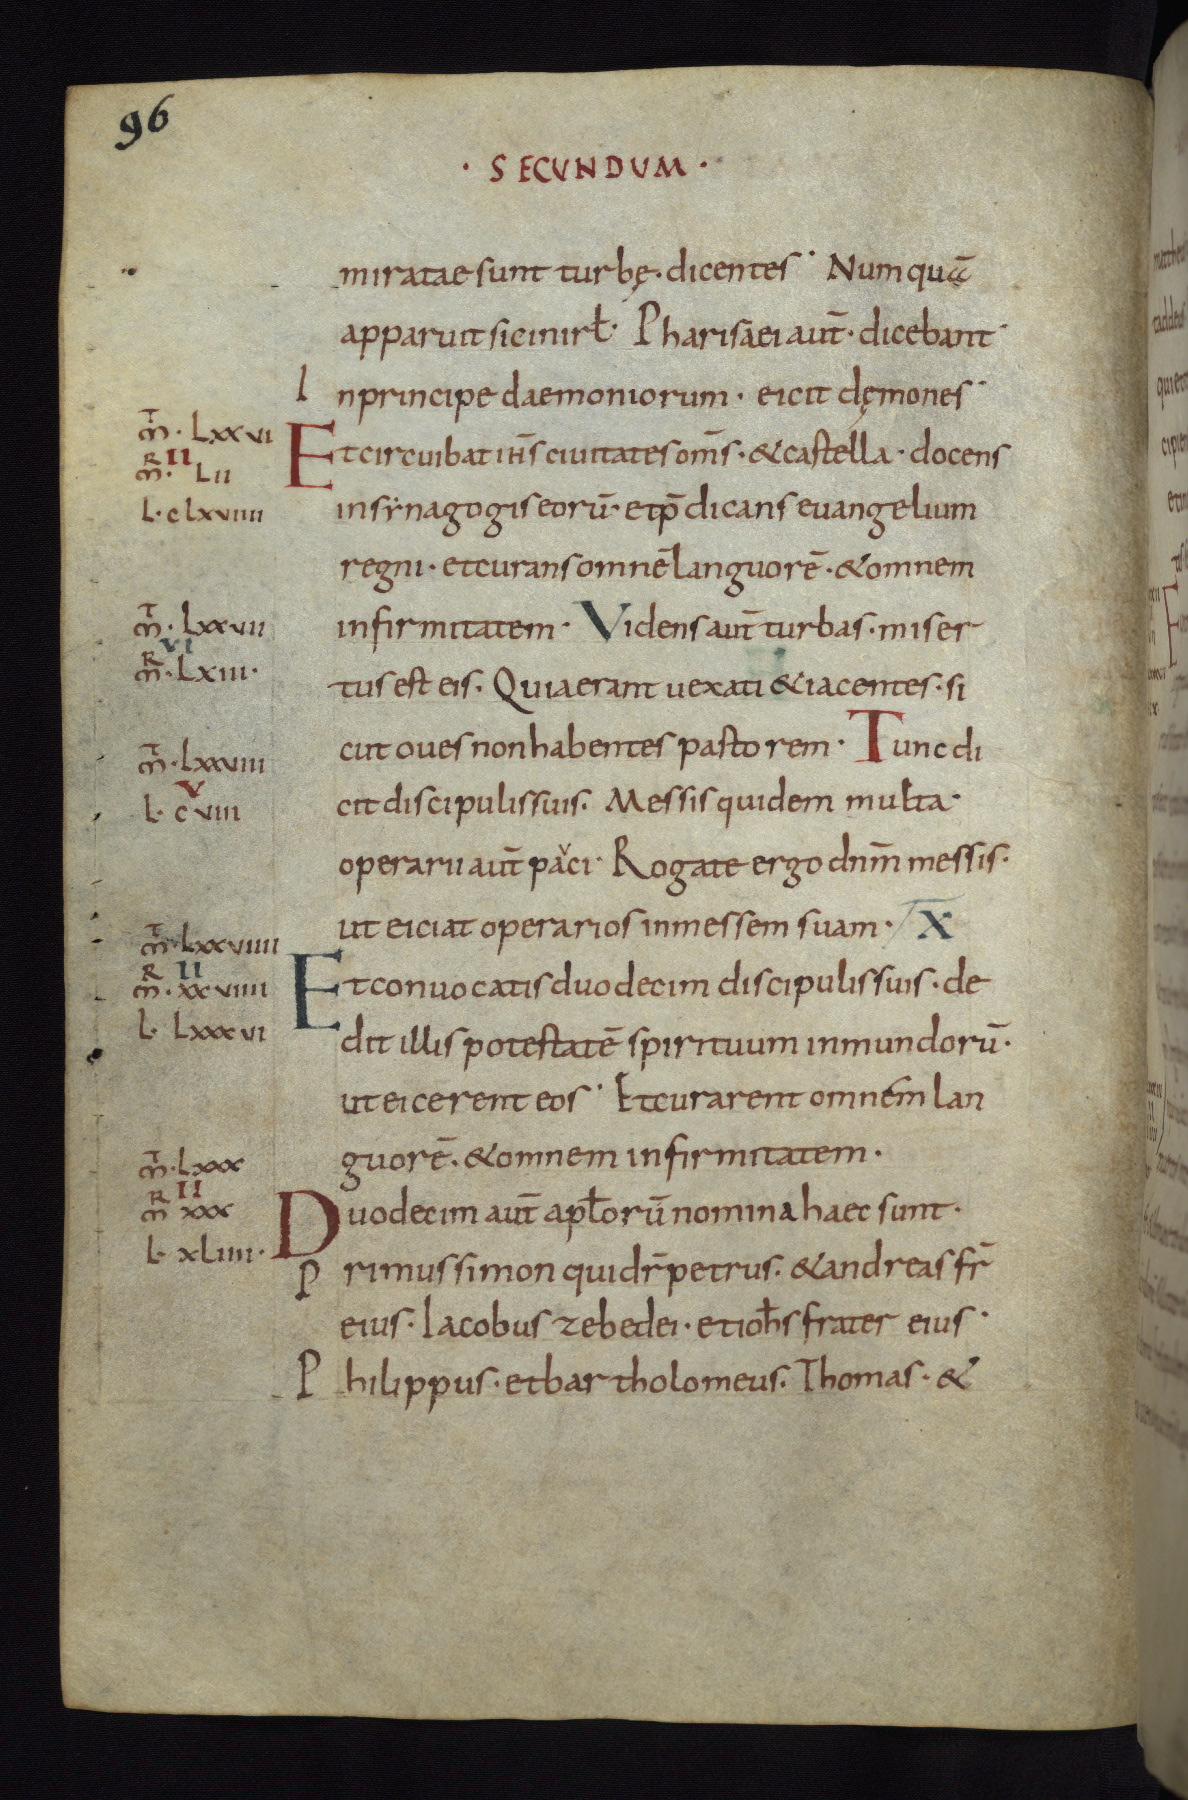 96
· SECUNDUM ·
miratae sunt turbę · dicentes · Numquā
apparuit sic in irƚ · Pharisaei aut̄ · dicebant ·
In principe daemoniorum · eicit dęmones ·
m̄ · Lxxvi
m̄ R · II Lii
L · cLxviiii
Et circuibat ih̄s ciuitates om̄s · & castella · docens
in synagogis eorū · et p̄dicans euangelium
regni · et curans omnē languorē · & omnem
m̄ · Lxxvii
m̄ R VI · Lxiii ·
infirmitatem · Videns aut̄ turbas · miser
tus est eis · Quia erant uexati & iacentes · si
m̄ · Lxxviii
V
L · cviii
cut oues non habentes pastorem · Tunc di
cit discipulis suis · Messis quidem multa ·
operarii aut̄ pauci · Rogate ergo dn̄m messis ·
ut eiciat operarios in messem suam · X
m̄ · Lxxviiii
m̄ R II · xxviiii
L · Lxxxvi
Et conuocatis duodecim discipulis suis · de
dit illis potestatē spirituum inmundorū ·
ut eicerent eos · Et curarent omnem lan
guorē · & omnem infirmitatem ·
m̄ · Lxxx
m̄ R II xxx
L · xLiiii ·
Duodecim aut̄ apƚorū nomina haec sunt ·
Primus simon qui dr̄ petrus · & andreas fr̄
eius · Iacobus zebedei · et ioħs frater eius ·
Philippus · et bartholomeus · Thomas · &